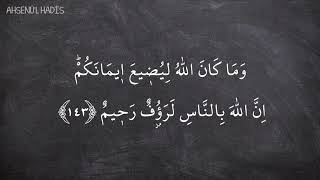 AHSENÜ'L HADİS
وَمَا كَانَ اللّٰهُ لِيُضٖيعَ اٖيمَانَكُمْؕ
اِنَّ اللّٰهَ بِالنَّاسِ لَرَؤُ۫فٌ رَحٖيمٌ ﴿١٤٣﴾